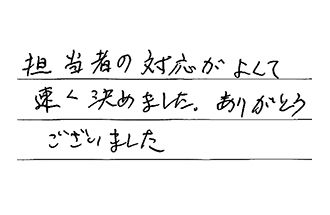 担当者の対応がよくて
速く決めました。ありがとう
ございました